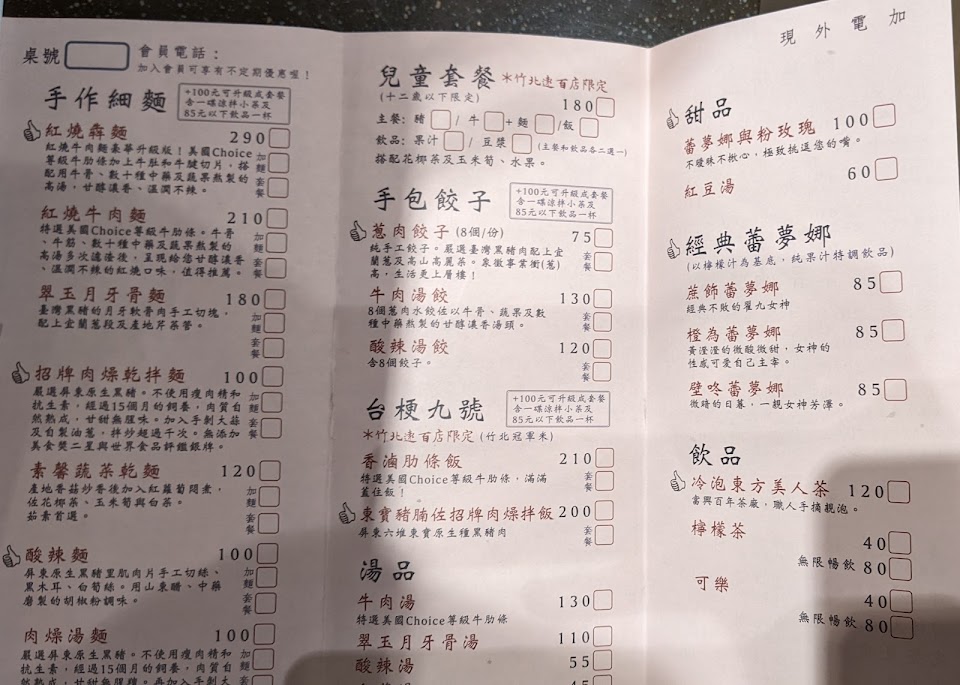 桌號
會員電話：
加入會員可享有不定期優惠喔！
手作細麵
+100元可升級成套餐
含一碟涼拌小菜及
85元以下飲品一杯
紅燒犇麵 290
紅燒牛肉麵豪華升級版！美國Choice
等級牛肋條加上牛肚和牛腱切片，搭
配用牛骨、數十種中藥及蔬果熬製的
高湯，甘醇濃香、溫潤不辣。
加麵
套餐
紅燒牛肉麵 210
特選美國Choice等級牛肋條。牛骨
、牛筋、數十種中藥及蔬果熬製的
高湯多次濾渣後，呈現給您甘醇濃香
、溫潤不辣的紅燒口味，值得推薦。
加麵
套餐
翠玉月牙骨麵 180
臺灣黑豬的月牙軟骨肉手工切塊，
配上宜蘭蔥段及產地芹菜管。
加麵
套餐
招牌肉燥乾拌麵 100
嚴選屏東原生黑豬。不使用瘦肉精和
抗生素，經過15個月的飼養，肉質自
然熟成，甘甜無腥味。加入手剝大蒜
及自製油蔥，拌炒超過千次。無添加
美食獎二星與世界食品評鑑銀牌。
加麵
套餐
素馨蔬菜乾麵 120
產地香菇炒香後加入紅蘿蔔悶煮，
佐花椰菜、玉米筍與白菜。
茹素首選。
加麵
套餐
酸辣麵 100
屏東原生黑豬里肌肉片手工切絲、
黑木耳、白筍絲。用山東醋、中藥
磨製的胡椒粉調味。
加麵
套餐
肉燥湯麵 100
嚴選屏東原生黑豬。不使用瘦肉精和
抗生素，經過15個月的飼養，肉質自
然熟成，甘甜無腥羶。再加入手剝大
加麵
套
兒童套餐 *竹北遠百店限定
(十二歲以下限定) 180
主餐：豬 / 牛 + 麵 /飯
飲品：果汁 / 豆漿 (主餐和飲品各二選一)
搭配花椰菜及玉米筍、水果。
手包餃子
+100元可升級成套餐
含一碟涼拌小菜及
85元以下飲品一杯
蔥肉餃子 (8個/份) 75
純手工餃子。嚴選臺灣黑豬肉配上宜
蘭蔥及高山高麗菜。象徵事業衝(蔥)
高，生活更上層樓！
套餐
牛肉湯餃 130
8個蔥肉水餃佐以牛骨、蔬果及數
種中藥熬製的甘醇濃香湯頭。
套餐
酸辣湯餃 120
含8個餃子。
套餐
台梗九號
+100元可升級成套餐
含一碟涼拌小菜及
85元以下飲品一杯
*竹北遠百店限定 (竹北冠軍米)
香滷肋條飯 210
特選美國Choice等級牛肋條，滿滿
蓋住飯！
套餐
東寶豬腩佐招牌肉燥拌飯 200
屏東六堆東寶原生種黑豬肉
套餐
湯品
牛肉湯 130
特選美國Choice等級牛肋條
翠玉月牙骨湯 110
酸辣湯 55
45
現 外 電 加
甜品
蕾夢娜與粉玫瑰 100
不曖昧不揪心，極致挑逗您的嘴。
紅豆湯 60
經典蕾夢娜
(以檸檬汁為基底，純果汁特調飲品)
蔗飾蕾夢娜 85
經典不敗的瓏九女神
橙為蕾夢娜 85
黃澄澄的微酸微甜，女神的
性感可愛自己主宰。
壁咚蕾夢娜 85
微暗的日暮，一親女神芳澤。
飲品
冷泡東方美人茶 120
當興百年茶廠，職人手摘靚泡。
檸檬茶
40
無限暢飲 80
可樂
40
無限暢飲 80